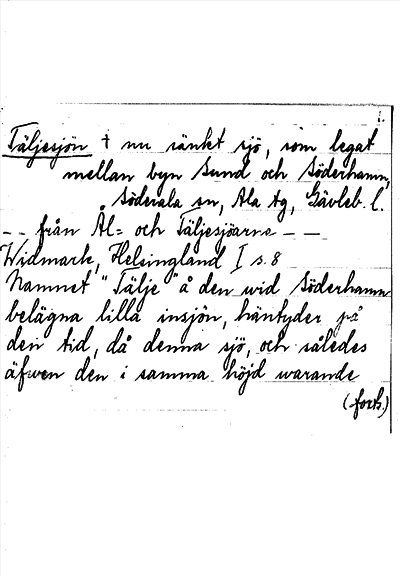 1.
Täljesjön † nu sänkt sjö, som legat
mellan byn Sund och Söderhamn,
Söderala sn, Ala tg, Gävleb. l.
-- från Ål= och Täljesjöarne --
Widmark, Helsingland I s. 8
Namnet "Tälje" å den wid Söderhamn
belägna lilla insjön, häntyder på
den tid, då denna sjö, och således
äfwen den i samma höjd warande
(forts.)